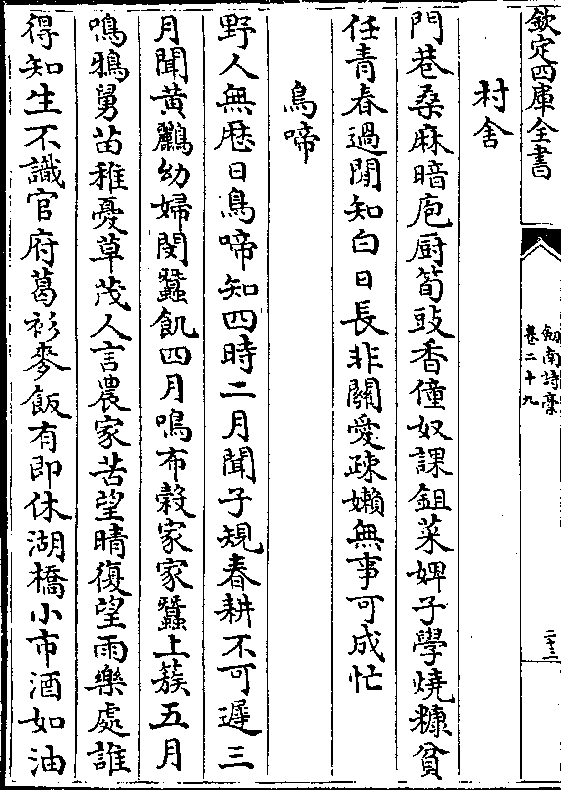 欽定四庫全書
劒南詩稾
卷二十九
二十三
村舍
門巷桑麻暗庖厨筍豉香僮奴課鉏菜婢子學燒糠貧
任青春過閒知白日長非關愛疎嬾無事可成忙
鳥啼
野人無厯日鳥啼知四時二月聞子規春耕不可遲三
月聞黃鸝幼婦閔蠶飢四月鳴布穀家家蠶上蔟五月
鳴鴉舅苗稚憂草茂人言農家苦望晴復望雨樂處誰
得知生不識官府葛衫麥飯有即休湖橋小市酒如油